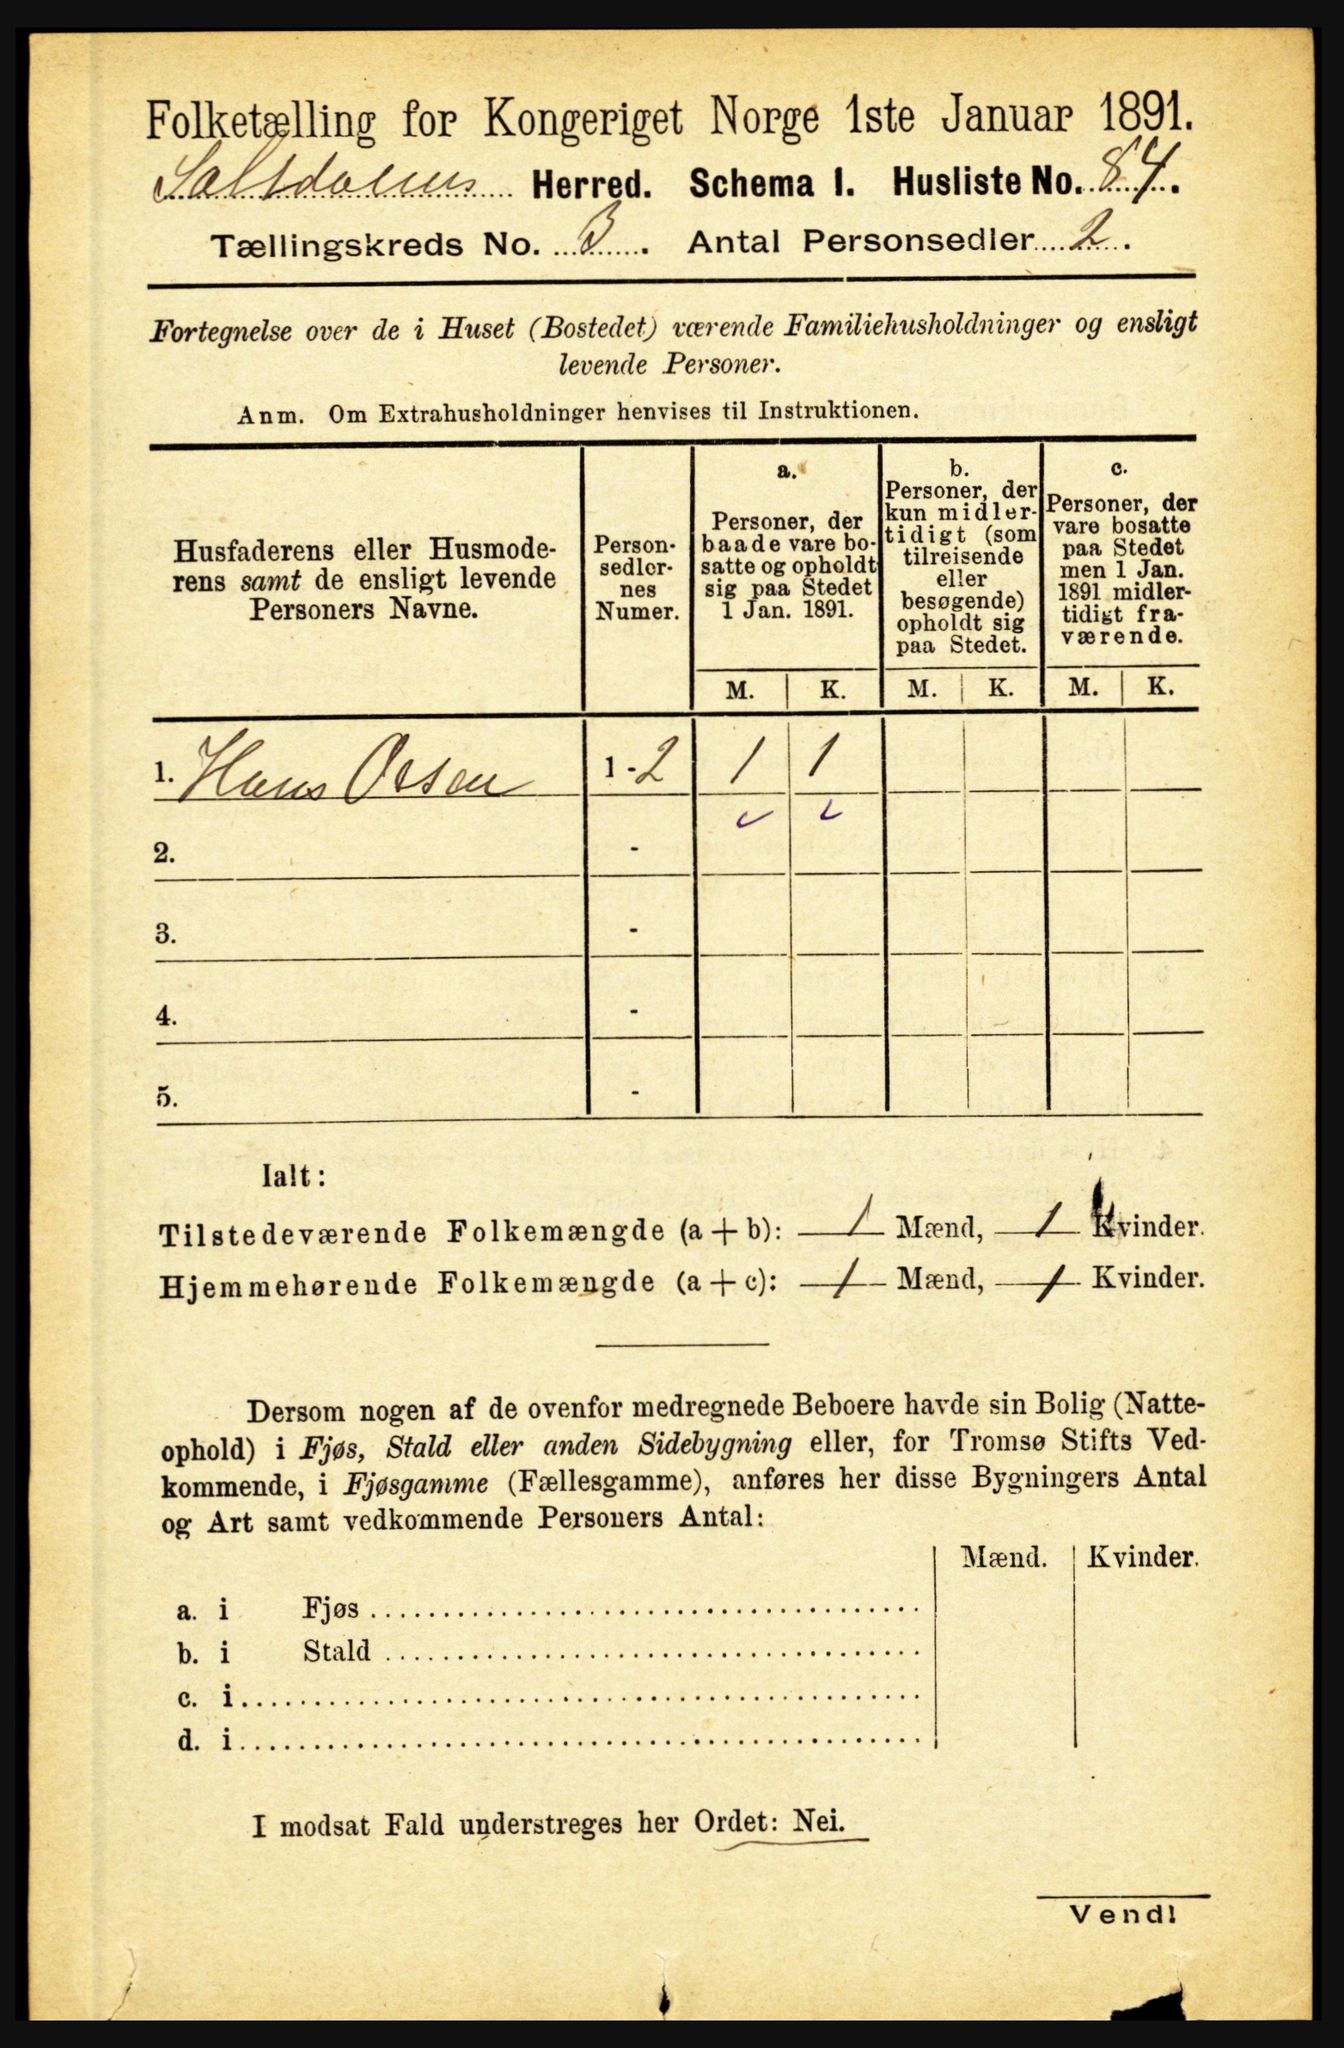 Folketælling for Kongeriget Norge 1ste Januar 1891.
Saltdalens Herred. Schema I. Husliste No. 84.
Tællingskreds No. 3. Antal Personsedler 2.
Fortegnelse over de i Huset (Bostedet) værende Familiehusholdninger og ensligt
levende Personer.
Anm. Om Extrahusholdninger henvises til Instruktionen.
Husfaderens eller Husmode-
rens samt de ensligt levende
Personers Navne.
Person-
sedler-
nes
Numer.
a.
Personer, der
baade vare bo-
satte og opholdt
sig paa Stedet
1 Jan. 1891.
b.
Personer, der
kun midler-
tidigt (som
tilreisende
eller
besøgende)
opholdt sig
paa Stedet.
c.
Personer, der
vare bosatte
paa Stedet
men 1 Jan.
1891 midler-
tidigt fra-
værende.
M. K. M. K. M. K.
1. Hans Olsen 1-2 1 1
2. -
3. -
4. -
5. -
Ialt:
Tilstedeværende Folkemængde (a + b): 1 Mænd, 1 Kvinder.
Hjemmehørende Folkemængde (a + c): 1 Mænd, 1 Kvinder.
Dersom nogen af de ovenfor medregnede Beboere havde sin Bolig (Natte-
ophold) i Fjøs, Stald eller anden Sidebygning eller, for Tromsø Stifts Ved-
kommende, i Fjøsgamme (Fællesgamme), anføres her disse Bygningers Antal
og Art samt vedkommende Personers Antal:
Mænd. Kvinder.
a. i Fjøs
b. i Stald
c. i
d. i
I modsat Fald understreges her Ordet: Nei.
Vend!